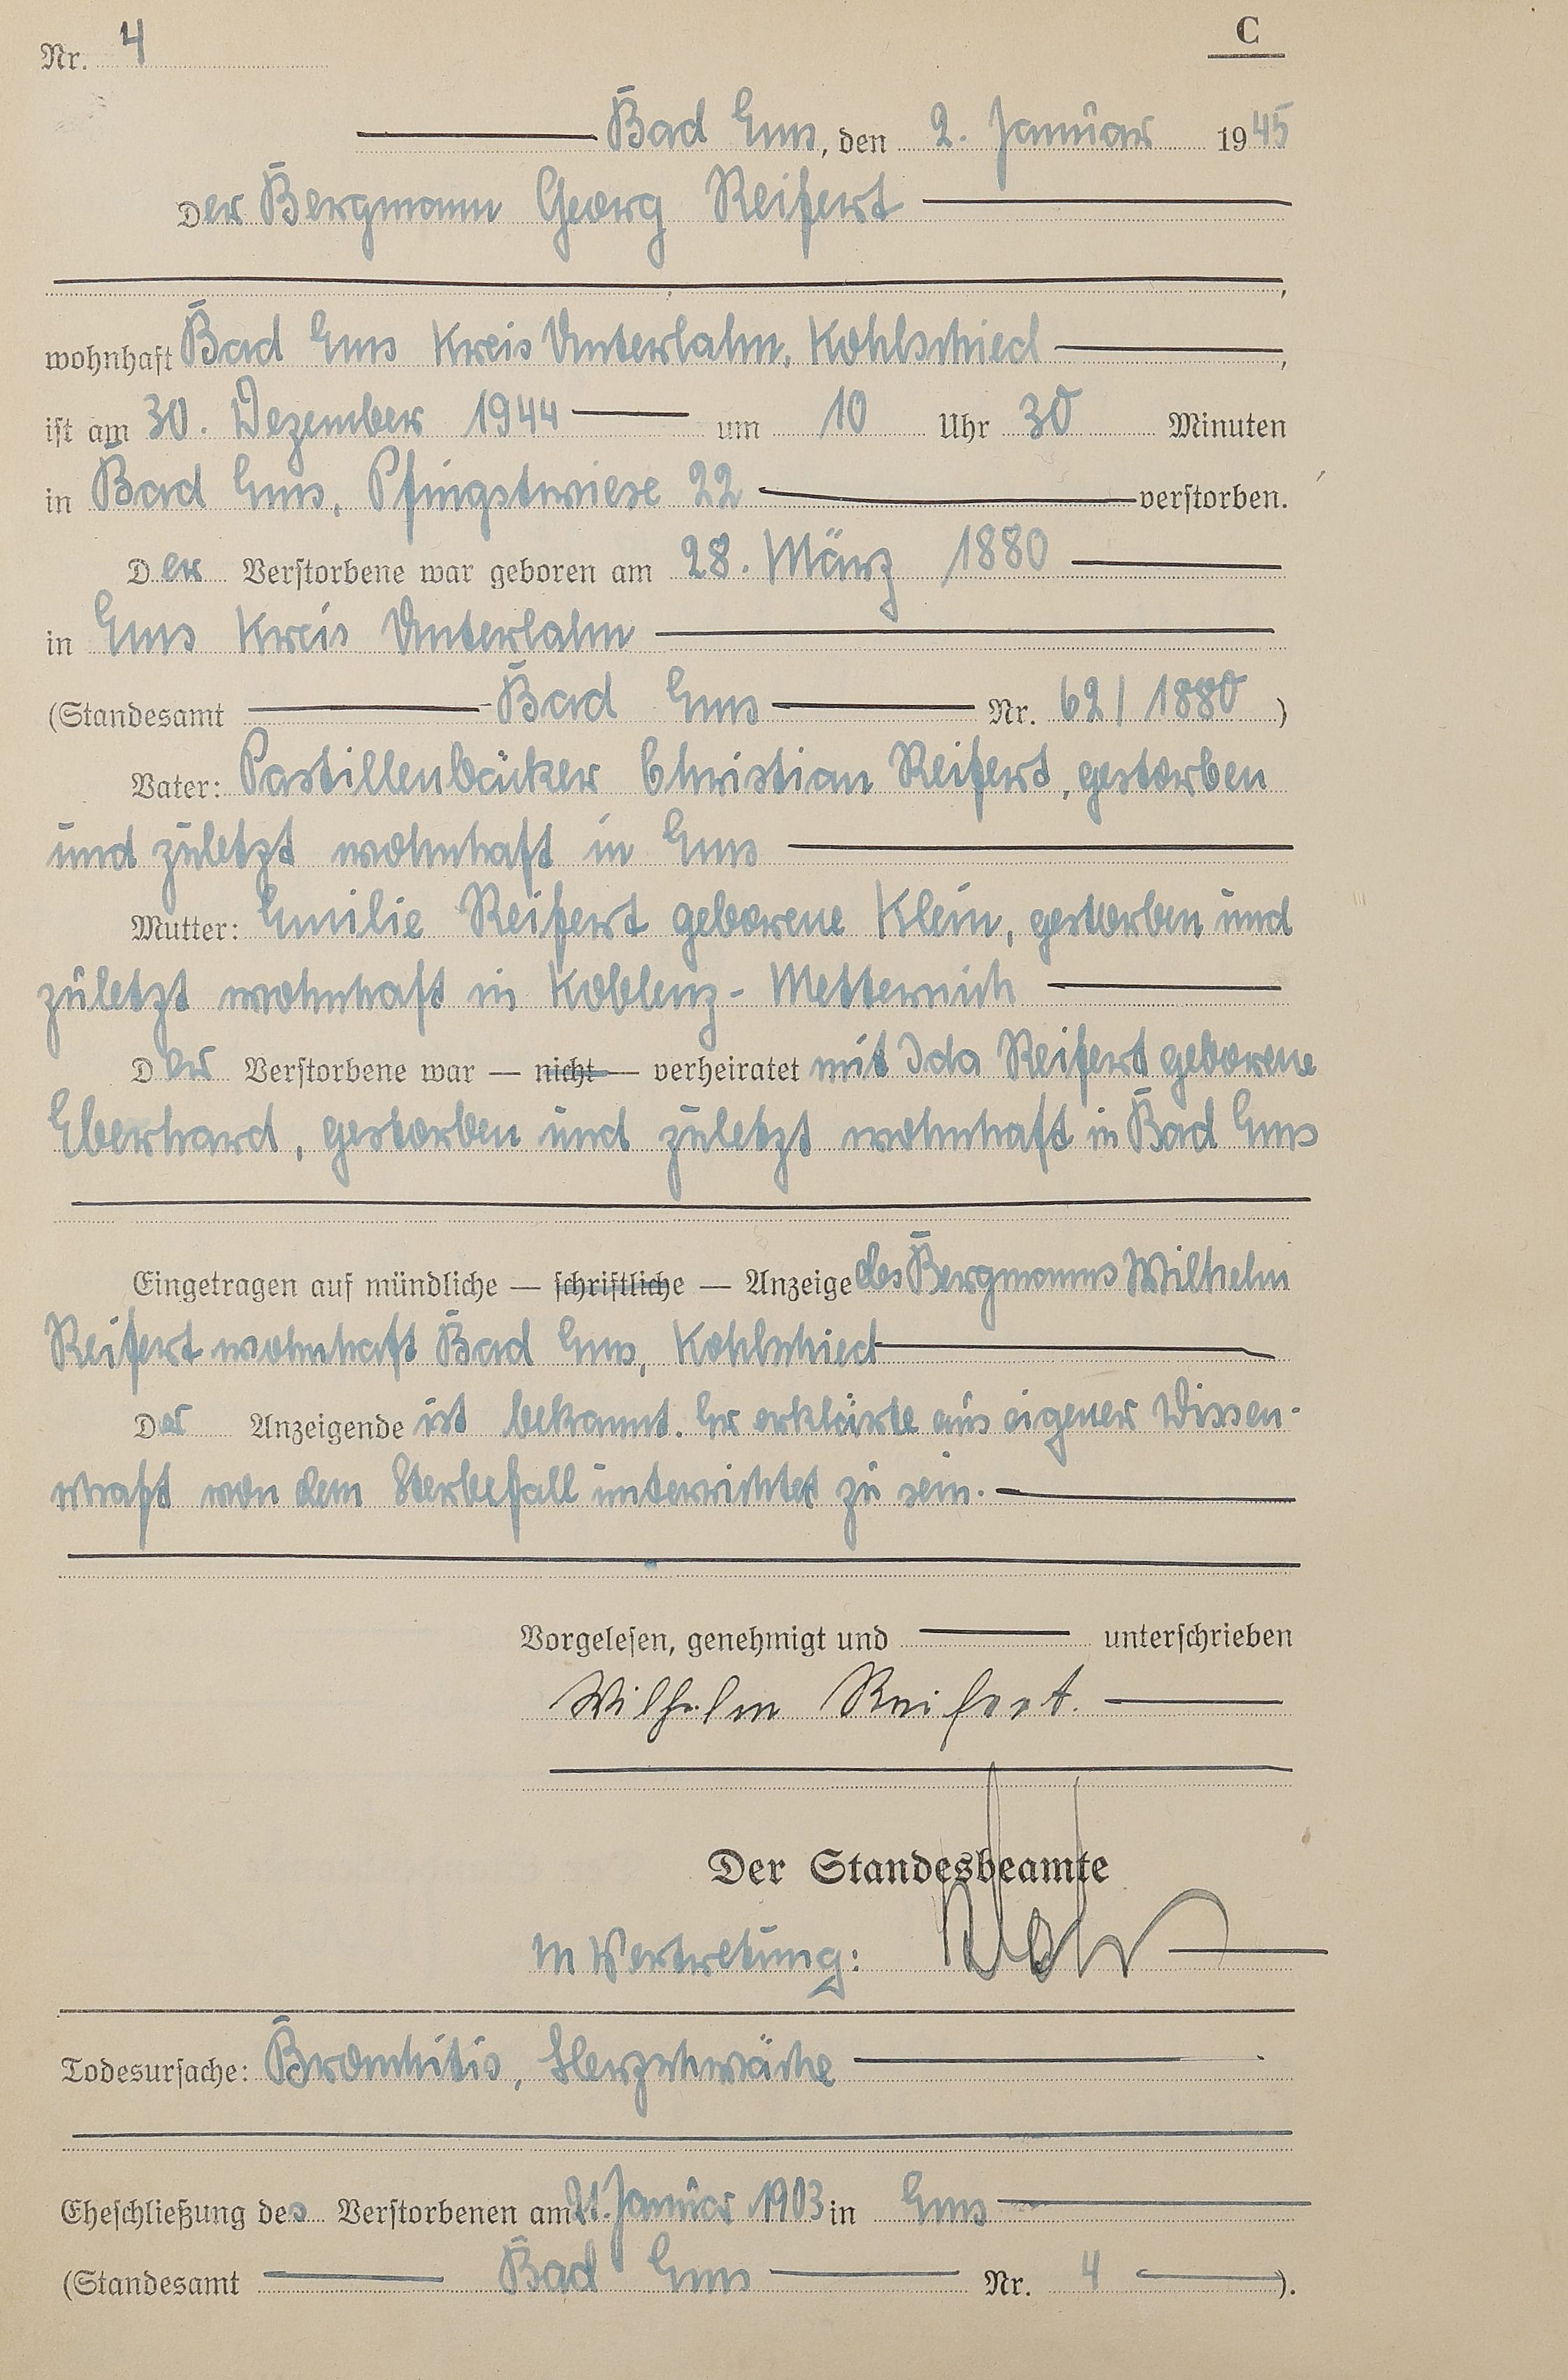 Nr. 4
C
Bad Ems, den 2. Januar 1945
Der Bergmann Georg Reifert
wohnhaft Bad Ems Kreis Unterlahn, Kohlschied,
ist am 30. Dezember 1944 um 10 Uhr 30 Minuten
in Bad Ems, Pfingstwiese 22 verstorben.
Der Verstorbene war geboren am 28. März 1880
in Ems Kreis Unterlahn
(Standesamt Bad Ems Nr. 62/1880)
Vater: Pastillenbäcker Christian Reifert, gestorben
und zuletzt wohnhaft in Ems
Mutter: Emilie Reifert geborene Klein, gestorben und
zuletzt wohnhaft in Koblenz-Metternich
Der Verstorbene war — nicht — verheiratet mit Ida Reifert geborene
Eberhard, gestorben und zuletzt wohnhaft in Bad Ems
Eingetragen auf mündliche — schriftliche — Anzeige des Bergmanns Wilhelm
Reifert wohnhaft Bad Ems, Kohlschied
Der Anzeigende ist bekannt. Er erklärte aus eigener Wissen-
schaft von dem Sterbefall unterrichtet zu sein.
Vorgelesen, genehmigt und unterschrieben
Wilhelm Reifert.
Der Standesbeamte
In Vertretung:
Todesursache: Bronchitis, Herzschwäche
Eheschließung des Verstorbenen am 21. Januar 1903 in Ems
(Standesamt Bad Ems Nr. 4).